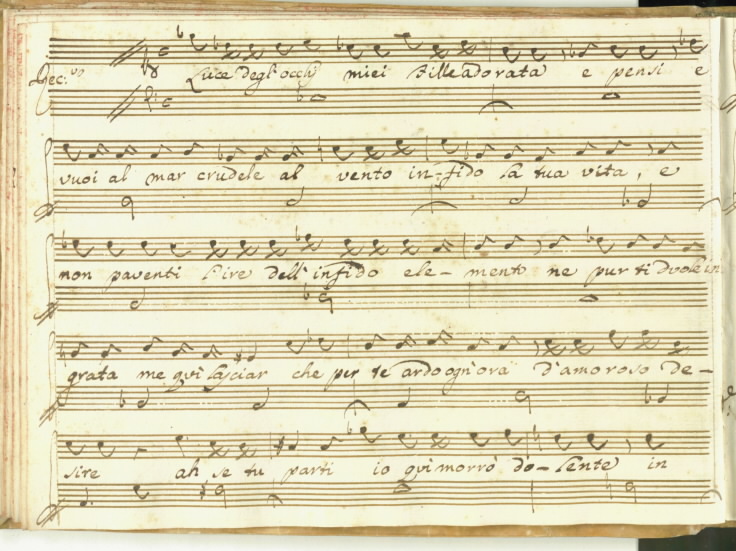 Rec.vo Luce degl'occhj miei Fille adorata e pensi e
vuoi al mar crudele al vento in-fido la tua vita, e
non paventi l'ire dell'infido ele-mento ne pur ti duole in
grata me qui lasciar che per te ardo ogn'ora d'amoroso de-
sire ah se tu parti io qui morrò do-lente in